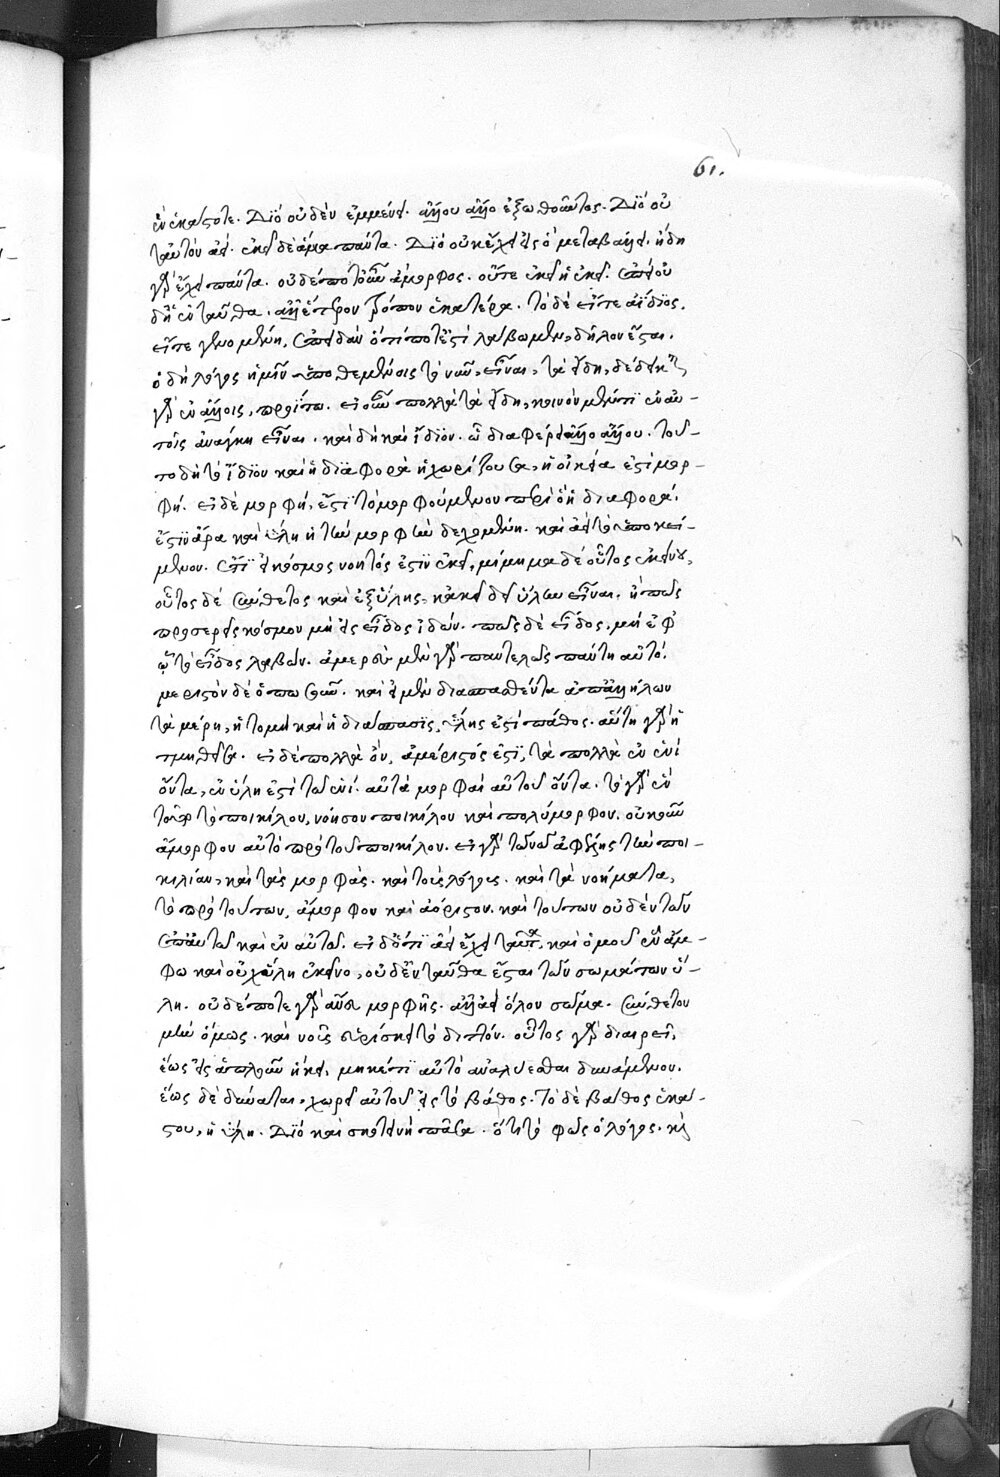 61.
ἓν ἑκάστοτε. Διὸ οὐδὲν ἐμμένει. ἄλλου ἄλλο ἐξωθοῦντος. Διὸ οὐ
ταὐτὸν ἀεί. ἐκεῖ δὲ ἅμα πάντα. Διὸ οὐκ ἔχει εἰς ὃ μεταβάλλει. ἤδη
γὰρ ἔχει πάντα. οὐδέποτ' οὖν ἄμορφος. οὔτε ἐκεῖ ἡ ἐκεῖ. ἐπεὶ οὐ
δὴ ἐνταῦθα. ἀλλ' ἕτερον τρόπον ἑκατέρα. τὸ δὲ εἴτε ἀΐδϊος,
εἴτε γενομένη, ἐπειδὰν ὅτί ποτ' ἐστὶ λάβωμεν, δῆλον ἔσται.
ὁ δὴ λόγος ἡμῖν ὑποθεμένοις τὸ νῦν, εἶναι, τὰ εἴδη, δέδεικται
γὰρ ἐν ἄλλοις, προΐτω. εἰ οὖν πολλὰ τὰ εἴδη, κοινὸν μέν τι ἐν αὐ-
τοῖς ἀνάγκη εἶναι. καὶ δὴ καὶ ἴδϊον. ᾧ διαφέρει ἄλλο ἄλλου. τοῦ-
το δὴ τὸ ἴδϊον καὶ ἡ διαφορὰ ἡ χωρίζουσα, ἡ οἰκεία ἐστὶ μορ-
φή. εἰ δὲ μορφή, ἔστι τὸ μορφούμενον περὶ ὃ ἡ διαφορά.
ἔστιν ἄρα καὶ ὕλη ἡ τὴν μορφὴν δεχομένη. καὶ ἀεὶ τὸ ὑποκεί-
μενον. ἔτι εἰ κόσμος νοητός ἐστιν ἐκεῖ, μίμημα δὲ οὗτος ἐκείνου,
οὗτος δὲ σύνθετος καὶ ἐξ ὕλης, κἀκεῖ δεῖ ὕλην εἶναι. ἢ πῶς
προσερεῖς κόσμον μὴ εἰς εἶδος ἰδών. πῶς δὲ εἶδος, μὴ ἐφ'
ᾧ τὸ εἶδος λαβών. ἀμερὲς μὲν γὰρ παντελῶς πάντη αὐτό.
μεριστὸν δὲ ὁπωσοῦν. καὶ εἰ μὲν διασπασθέντα ἀπ' ἀλλήλων
τὰ μέρη, ἡ τομὴ καὶ ἡ διάσπασις, ὕλης ἐστὶ πάθος. αὕτη γὰρ ἡ
τμηθεῖσα. εἰ δὲ πολλὰ ὂν, ἀμέριστός ἐστι, τὰ πολλὰ ἐν ἑνὶ
ὄντα, ἐν ὕλη ἐστὶ τῶ ἑνί. αὐτὰ μορφαὶ αὐτοῦ ὄντα. τὸ γὰρ ἓν
τοῦτο τὸ ποικίλον, νόησον ποικίλον καὶ πολύμορφον. οὐκοῦν
ἄμορφον αὐτὸ πρὸ τοῦ ποικίλον. εἰ γὰρ τῶ νῶ ἀφέλης τὴν ποι-
κιλίαν, καὶ τὰς μορφὰς. καὶ τοὺς λόγους. καὶ τὰ νοήματα,
τὸ πρὸ τούτων, ἄμορφον καὶ ἀόριστον. καὶ τούτων οὐδὲν τῶν
ἐπ' αὐτῶ καὶ ἐν αὐτῶ. εἰ δ' ὅτι ἀεὶ ἔχει ταῦτα. καὶ ὁμοῦ ἓν ἄμ-
φω καὶ οὐχ ὕλη ἐκεῖνο, οὐδ' ἐνταῦθα ἔσται τῶν σωμάτων ὕ-
λη. οὐδέποτε γὰρ ἄνευ μορφῆς. ἀλλ' ἀεὶ ὅλον σῶμα. σύνθετον
μὴν ὅμως. καὶ νοῦς εὑρίσκει τὸ διττόν. οὗτος γὰρ διαιρεῖ,
ἕως εἰς ἁπλοῦν ἥκει, μηκέτι αὐτὸ ἀναλύεσθαι δυνάμενον.
ἕως δὲ δύναται, χωρεῖ αὐτοῦ εἰς τὸ βάθος. Τὸ δὲ βάθος ἑκά-
στου, ἡ ὕλη. Διὸ καὶ σκοτεινὴ πᾶσα. ὅτι τὸ φῶς ὁ λόγος. καὶ